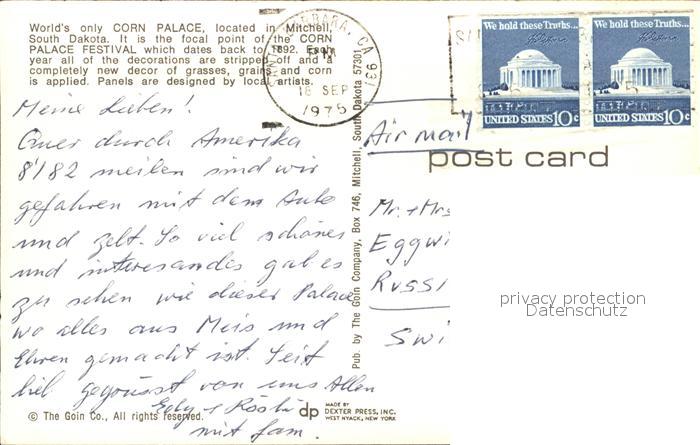 World's only CORN PALACE, located in Mitchell,
South Dakota. It is the focal point of the CORN
PALACE FESTIVAL which dates back to 1892. Each
year all of the decorations are stripped off and a
completely new decor of grasses, grains and corn
is applied. Panels are designed by local artists.
SANTA BARBARA, CA 931
PM
18 SEP
1975
We hold these Truths...
UNITED STATES 10c
We hold these Truths...
UNITED STATES 10c
Meine Lieben!
Quer durch Amerika
8'182 meilen sind wir
gefahren mit dem Auto
und zelt. So viel schönes
und interesandes gab es
zu sehen wie dieser Palace
wo alles aus Meis und
Ehren gemacht ist. Seit
viel gegrüsst von uns Allen
Edy + Rösli
mit fam.
Pub. by The Goin Company, Box 746, Mitchell, South Dakota 57301
Air mail
post card
Mr. + Mrs
Eggwi
RUSSI
Swi
privacy protection
Datenschutz
© The Goin Co., All rights reserved.
dp MADE BY
DEXTER PRESS, INC.
WEST NYACK, NEW YORK